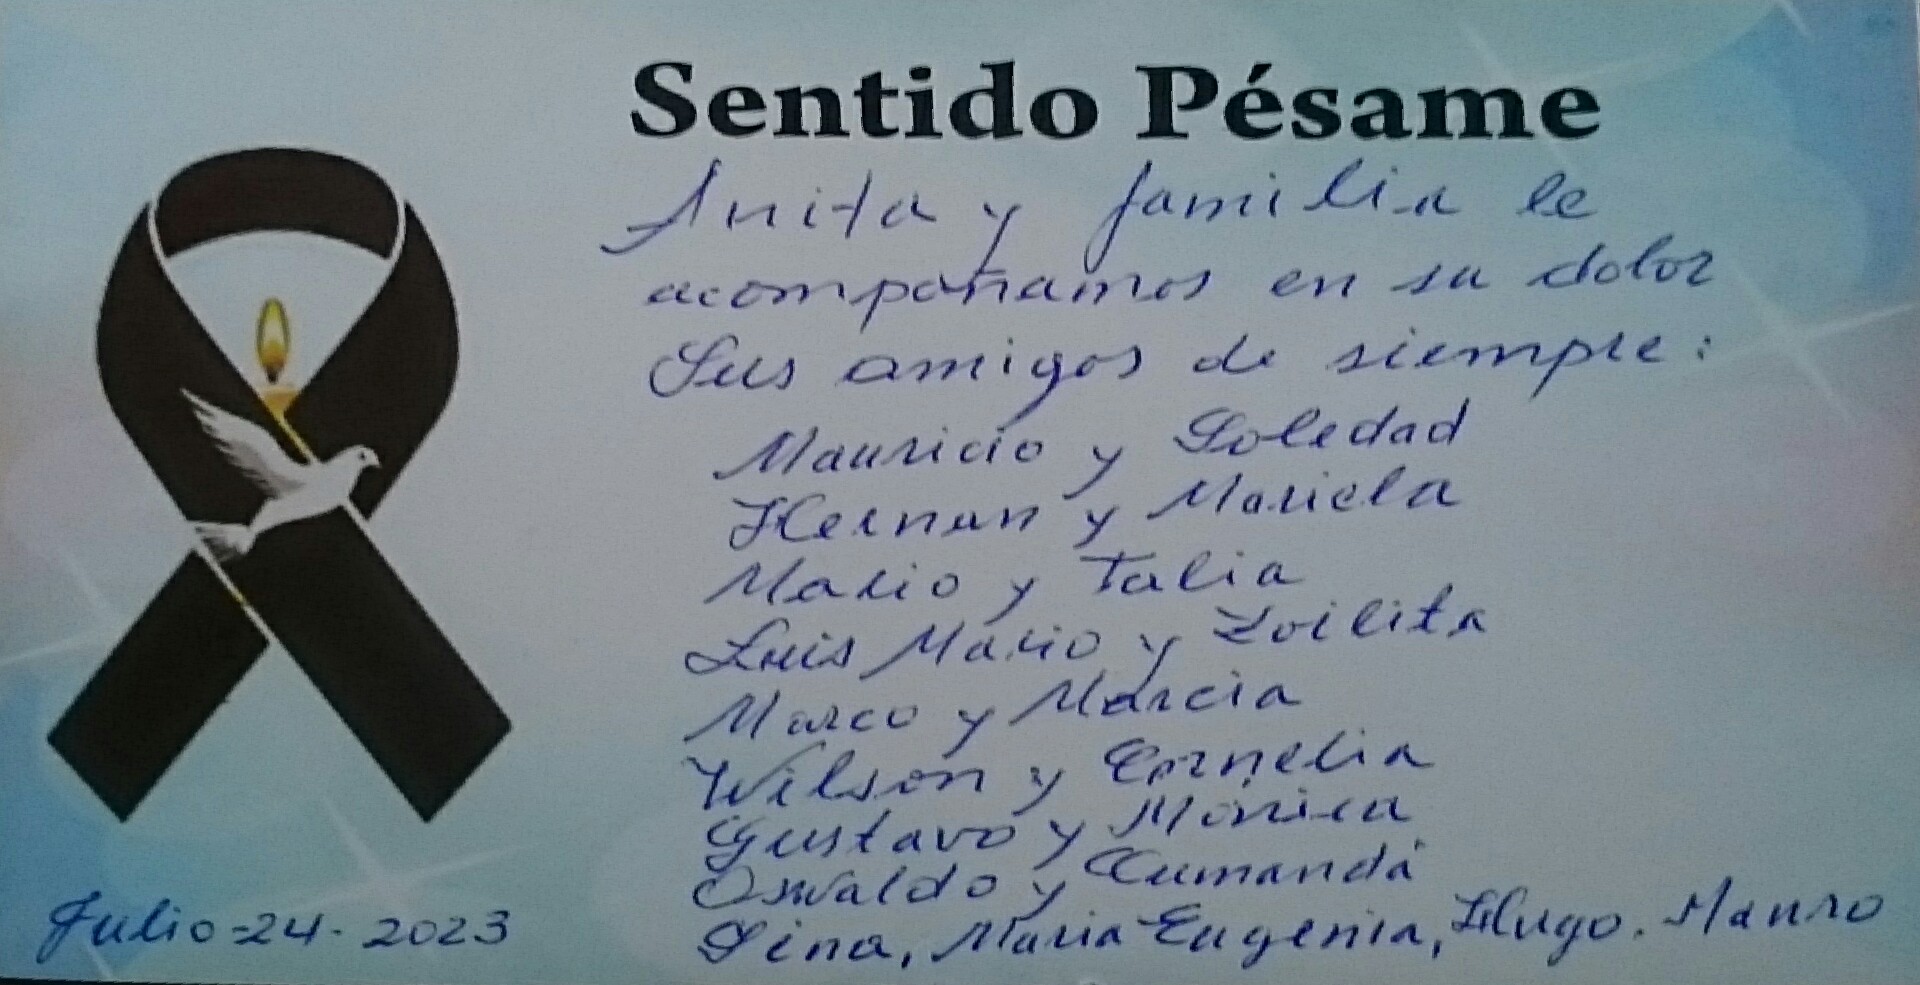 Sentido Pésame
Anita y familia le
acompañamos en su dolor
Sus amigos de siempre:
Mauricio y Soledad
Hernan y Mariela
Mario y Talia
Luis Mario y Zoilita
Marco y Marcia
Wilson y Cornelia
Gustavo y Mónica
Oswaldo y Cumandá
Maria Eugenia, Hugo. Mauro
Julio-24-2023